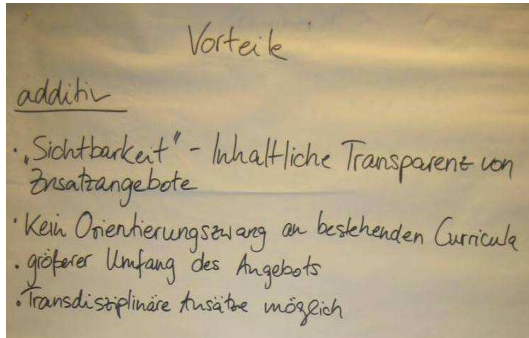 Vorteile
additiv
• „Sichtbarkeit" - Inhaltliche Transparenz von
Zusatzangebote
• Kein Orientierungszwang an bestehenden Curricula
• größerer Umfang des Angebots
• Transdisziplinäre Ansätze möglich